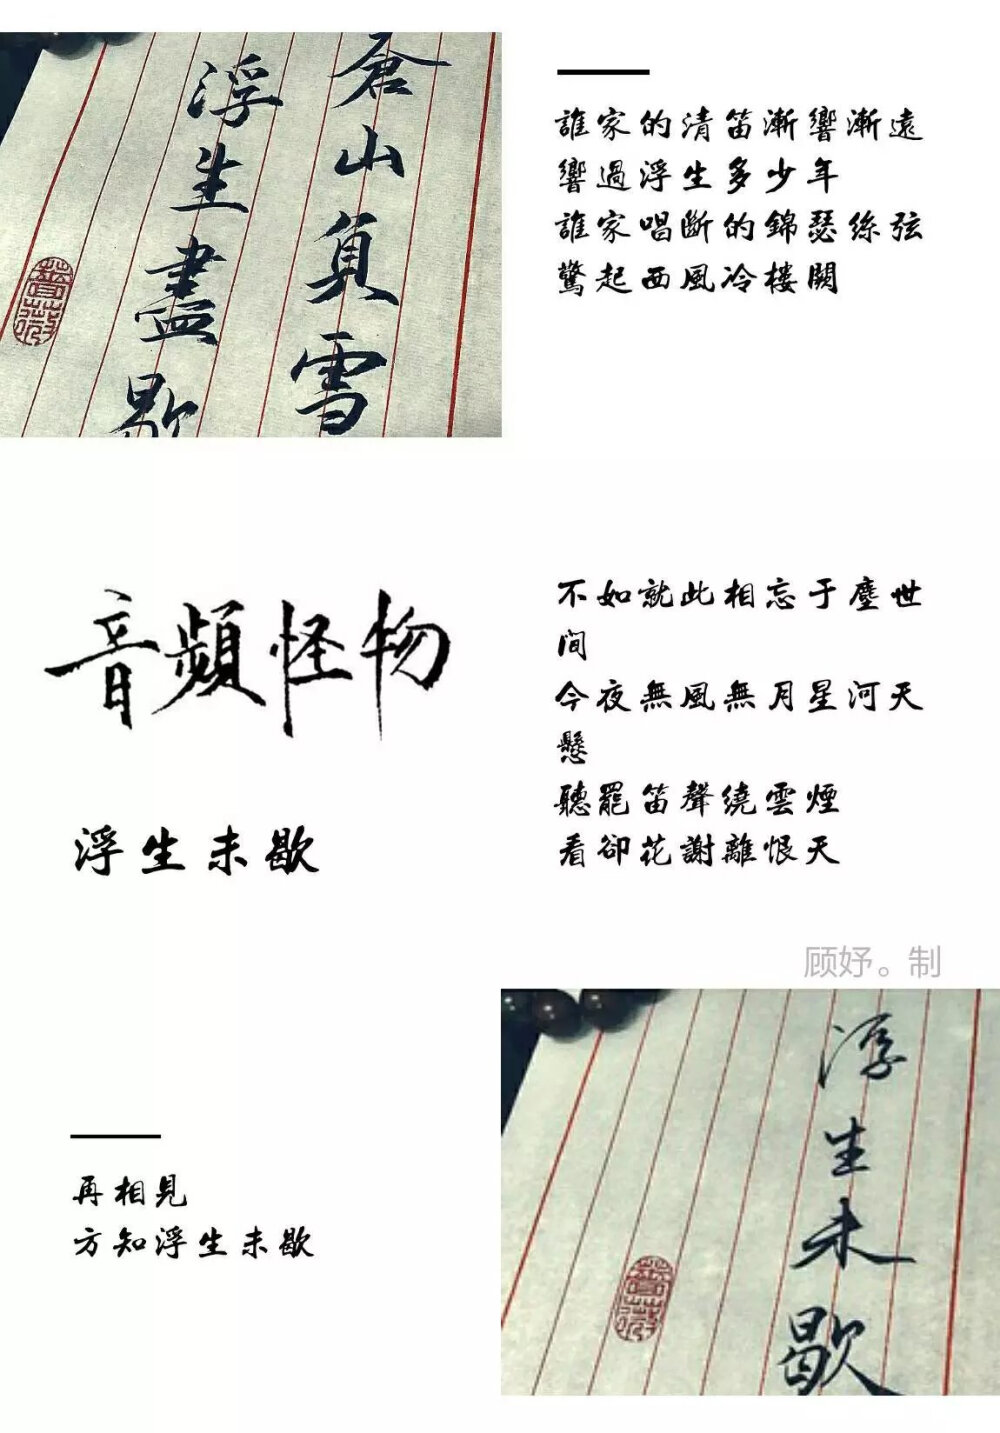 蒼山負雪
浮生盡歇
薔薇
誰家的清笛漸響漸遠
響過浮生多少年
誰家唱斷的錦瑟絲弦
驚起西風冷樓闕
音頻怪物
浮生未歇
不如就此相忘于塵世
間
今夜無風無月星河天
懸
聽罷笛聲繞雲煙
看卻花謝離恨天
顾妤。制
再相見
方知浮生未歇
浮生未歇
薔薇